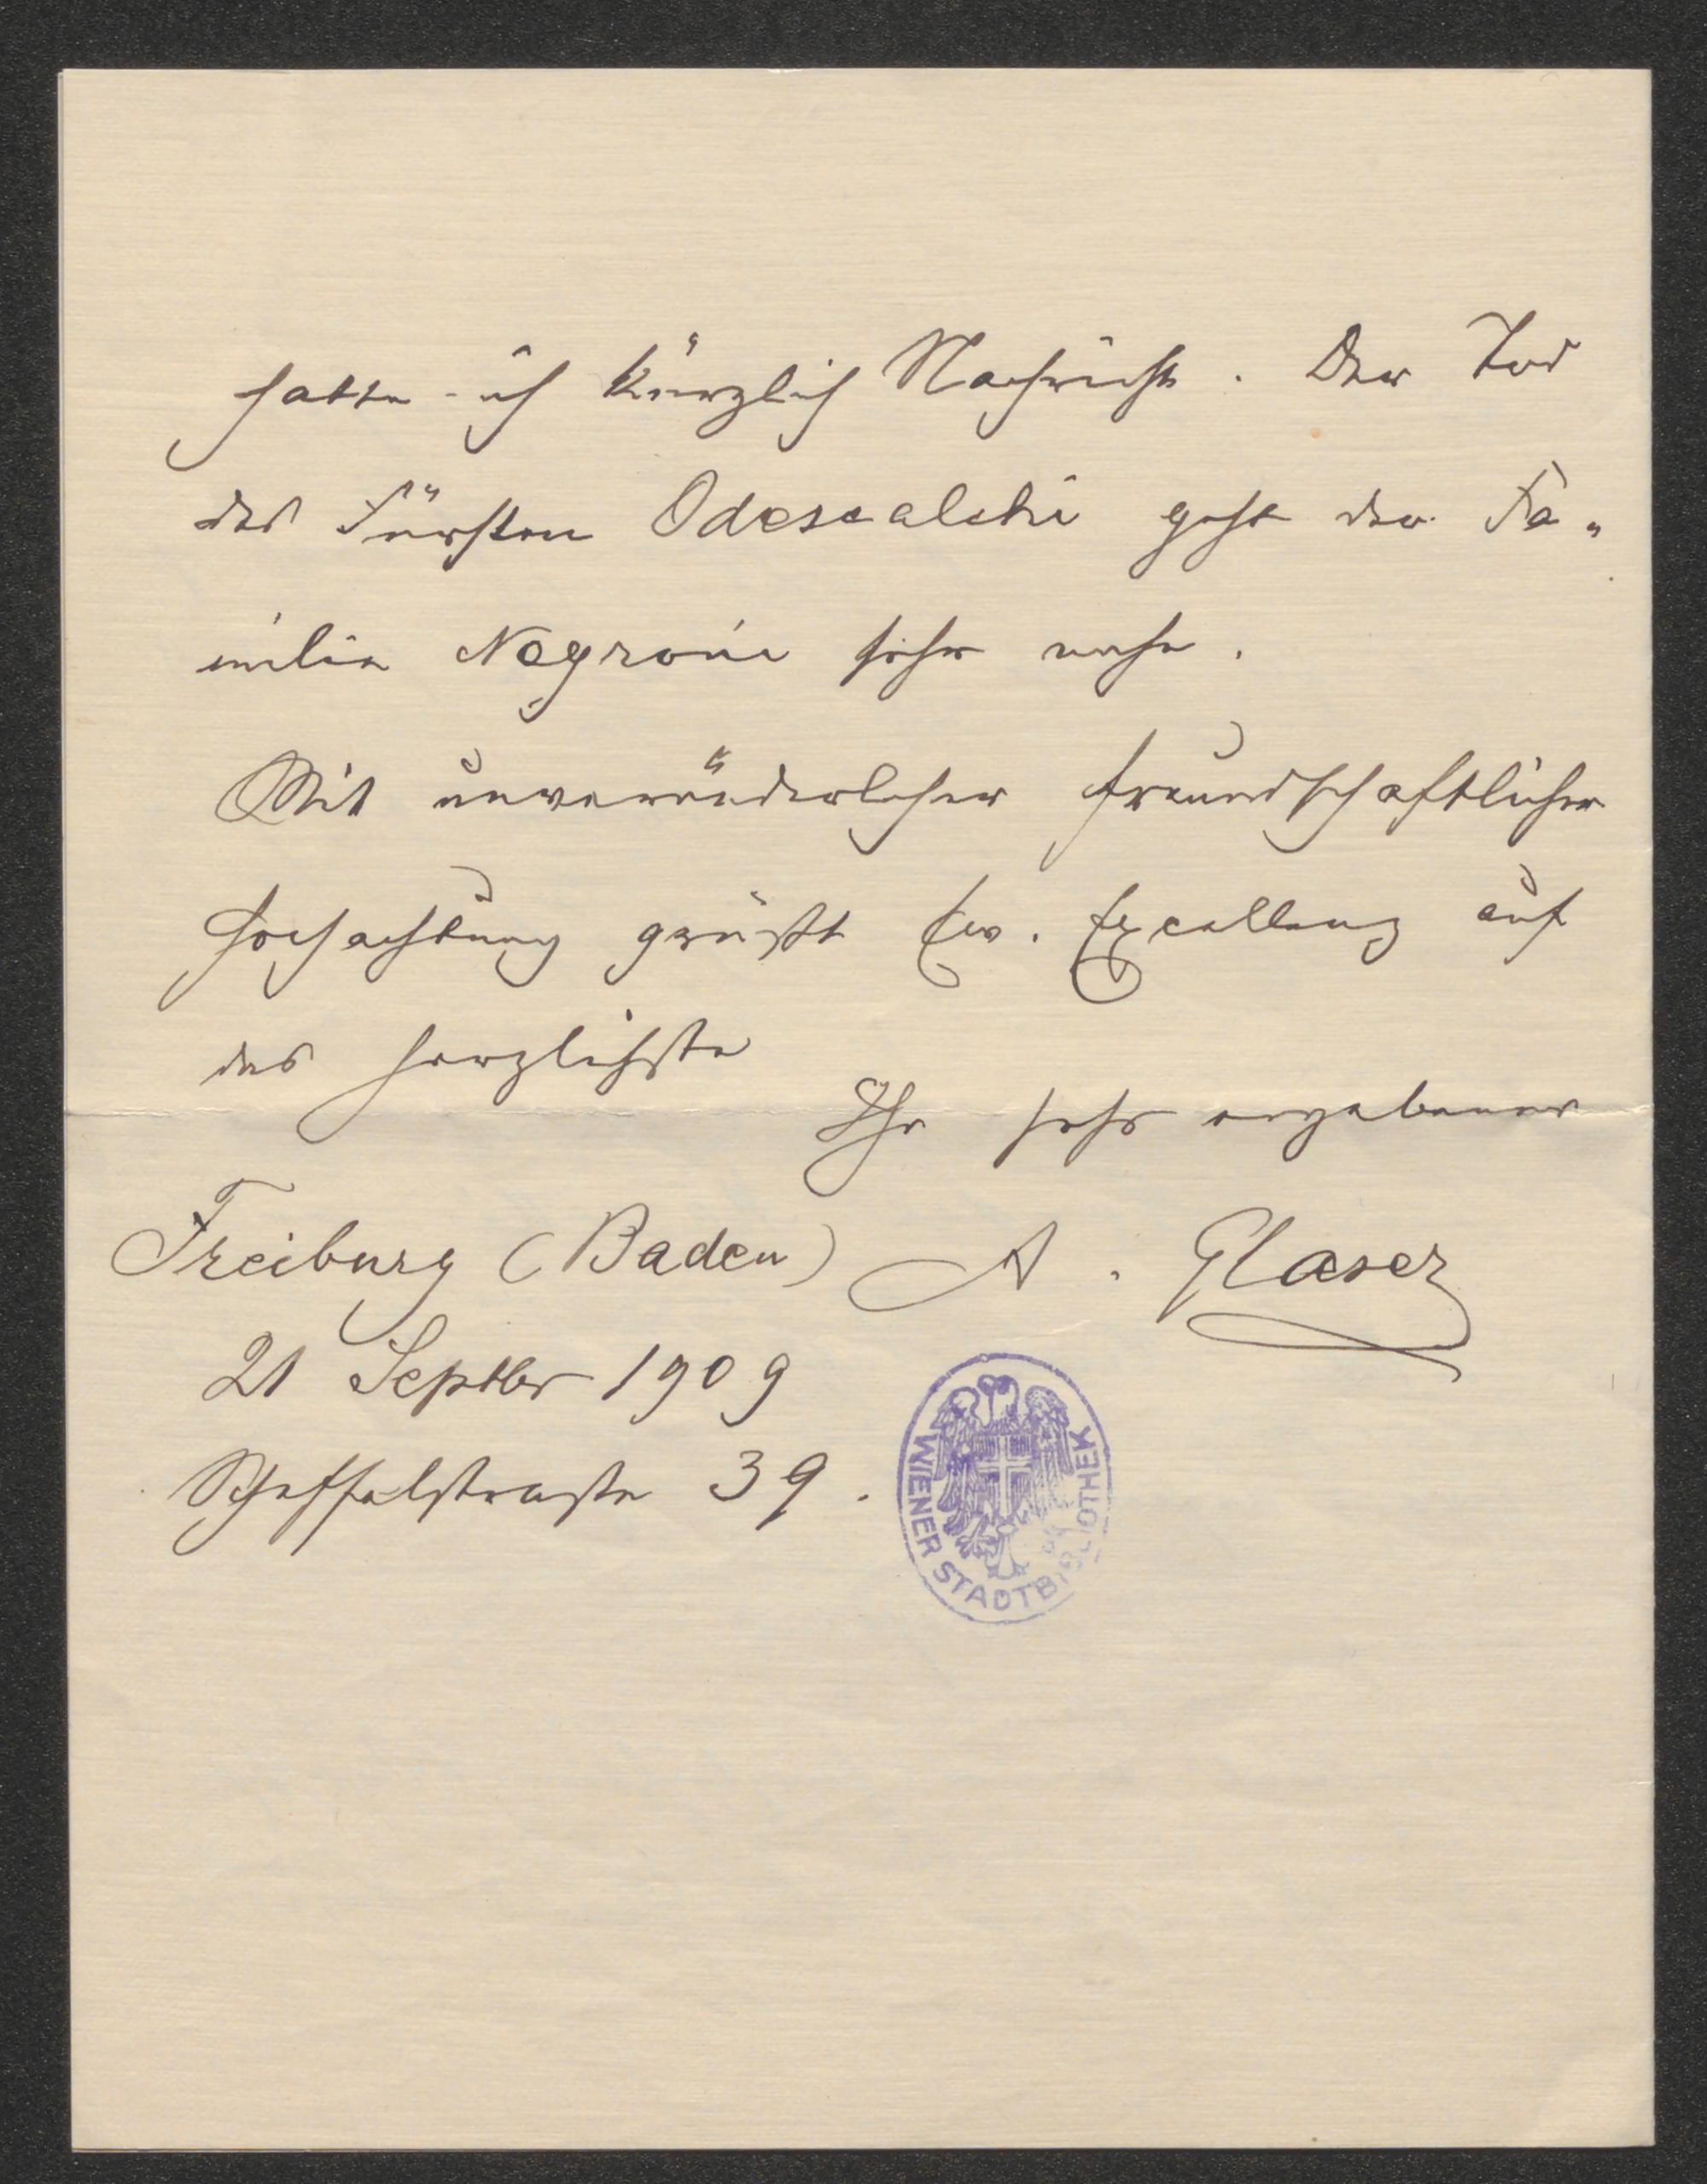 hatte ich kürzlich Nachricht. Der Tod
des Fürsten Odescalchi geht der Fa„
milie Negroni sehr nahe.
Mit unveränderlicher freundschaftlicher
Hochachtung grüßt Ew. Excellenz auf
das herzlichste
Ihr sehr ergebener
Freiburg (Baden) A. Glaser
21 Septbr 1909
Scheffelstraße 39.
WIENER STADTBIBLIOTHEK